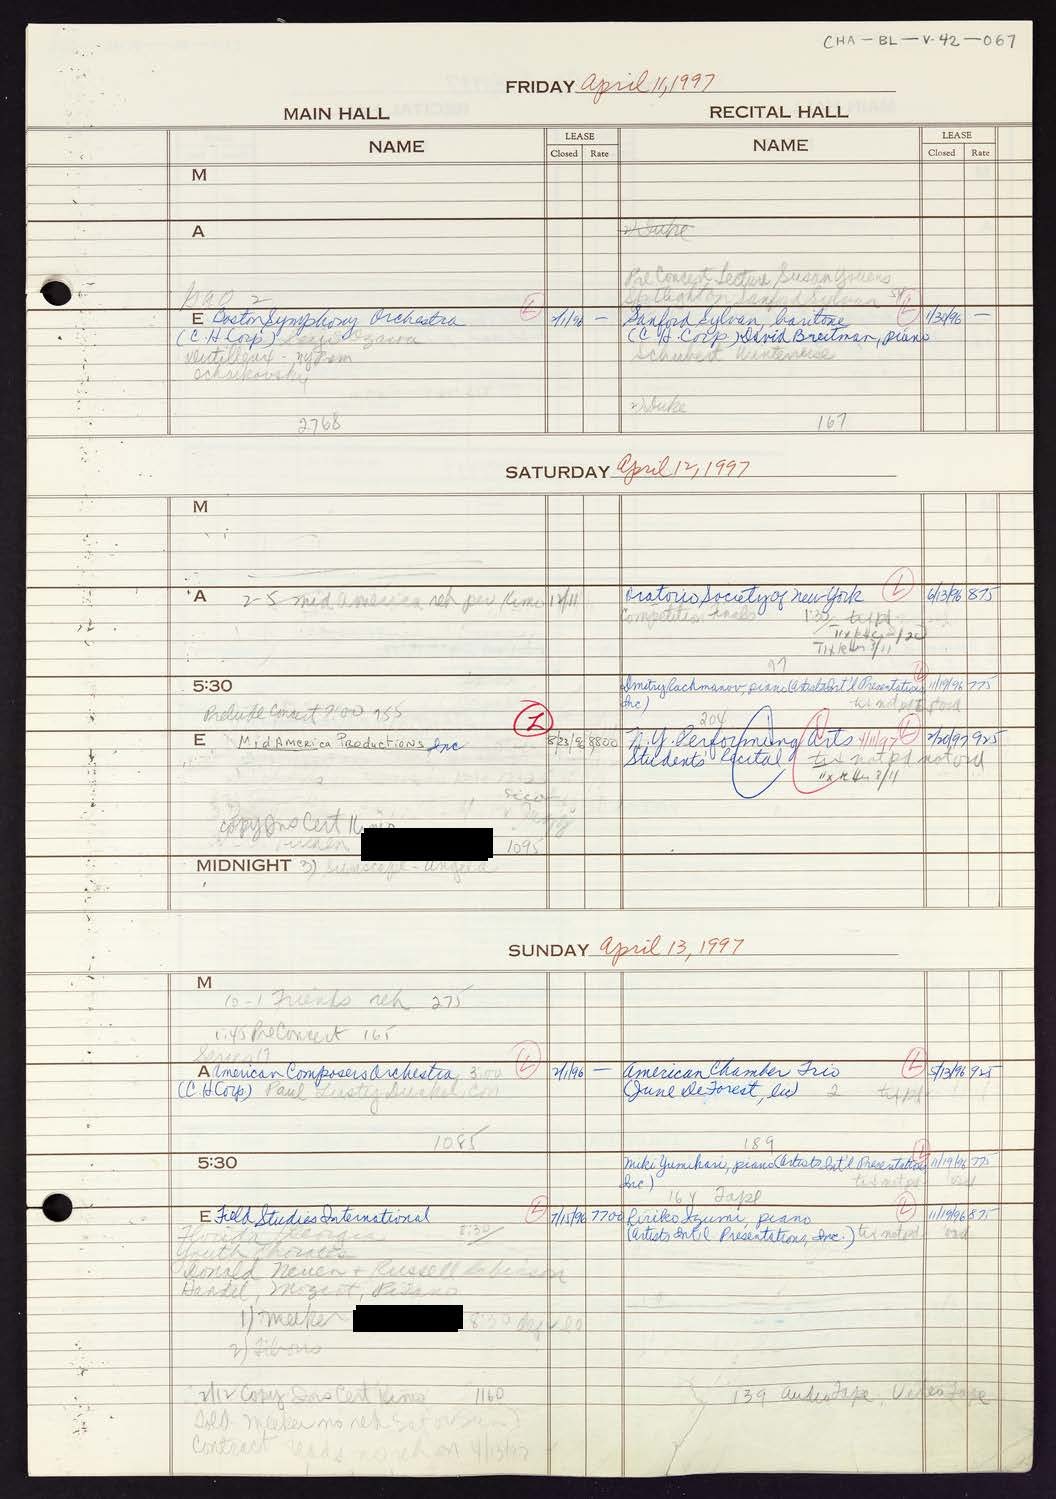 CHA-BL-V.42-067
FRIDAY April 11, 1997
MAIN HALL
RECITAL HALL
NAME
LEASE
Closed Rate
NAME
LEASE
Closed Rate
M
A
2) Duke
Pre Concert Lecture, Susan Youens
Spotlight on Sanford Sylvan
E Boston Symphony Orchestra L 2/1/96 —
(C.H Corp) Seiji Ozawa
Dutilleux - ny prem
Tchaikovsky
2768
Sanford Sylvan, baritone L 1/30/96 —
(C.H. Corp) David Breitman, piano
Schubert Winterreise
2) Duke
167
SATURDAY April 12, 1997
M
A 2-5 mid america reh per Kimo 12/11
Oratorio Society of New York L 6/13/96 875
Competition Finals 1:30 tixpd
Tixklm 3/11
97
5:30
Prelude Concert 7:00 755
Dmitry Rachmanov, piano (Artists Int'l Presentations L 11/19/96 775
Inc) tix not pd
204
E MidAmerica Productions Inc L 8/23/96 8800
N.Y. Performing Arts 4/11/97 L 2/20/97 925
Students' Recital tix not pd not ord
Tixklm 3/11
copy Ins Cert Kimo
1095
MIDNIGHT 3) Suncape - Angela
SUNDAY April 13, 1997
M
10-1 Friends reh 275
1:45 PreConcert 165
Series 17
A American Composers Orchestra 3:00 L 2/1/96 —
(C H Corp) Paul Lustig Dunkel, Con
1085
American Chamber Trio L 5/13/96 925
(June DeForest, ind) 2 tixpd
189
5:30
Miki Yumihari, piano (Artists Int'l Presentations L 11/19/96 775
Inc) tix not pd ord
164 Tape
E Field Studies International L 7/15/96 7700
Florida Georgia 8:30
Youth Chorales
Donald Neuen + Russell Robinson
Handel, Mozart,
1) Meeker 8:30
2) Fibrous
2/12 Copy Ins Cert Kimo 1160
Told Meeker no reh Sat or Sun
Contract reads no reh on 4/13/97
Ririko Izumi, piano L 11/19/96 875
(Artists Int'l Presentations, Inc.) tix not pd ord
139 Audio Tape, Video Tape